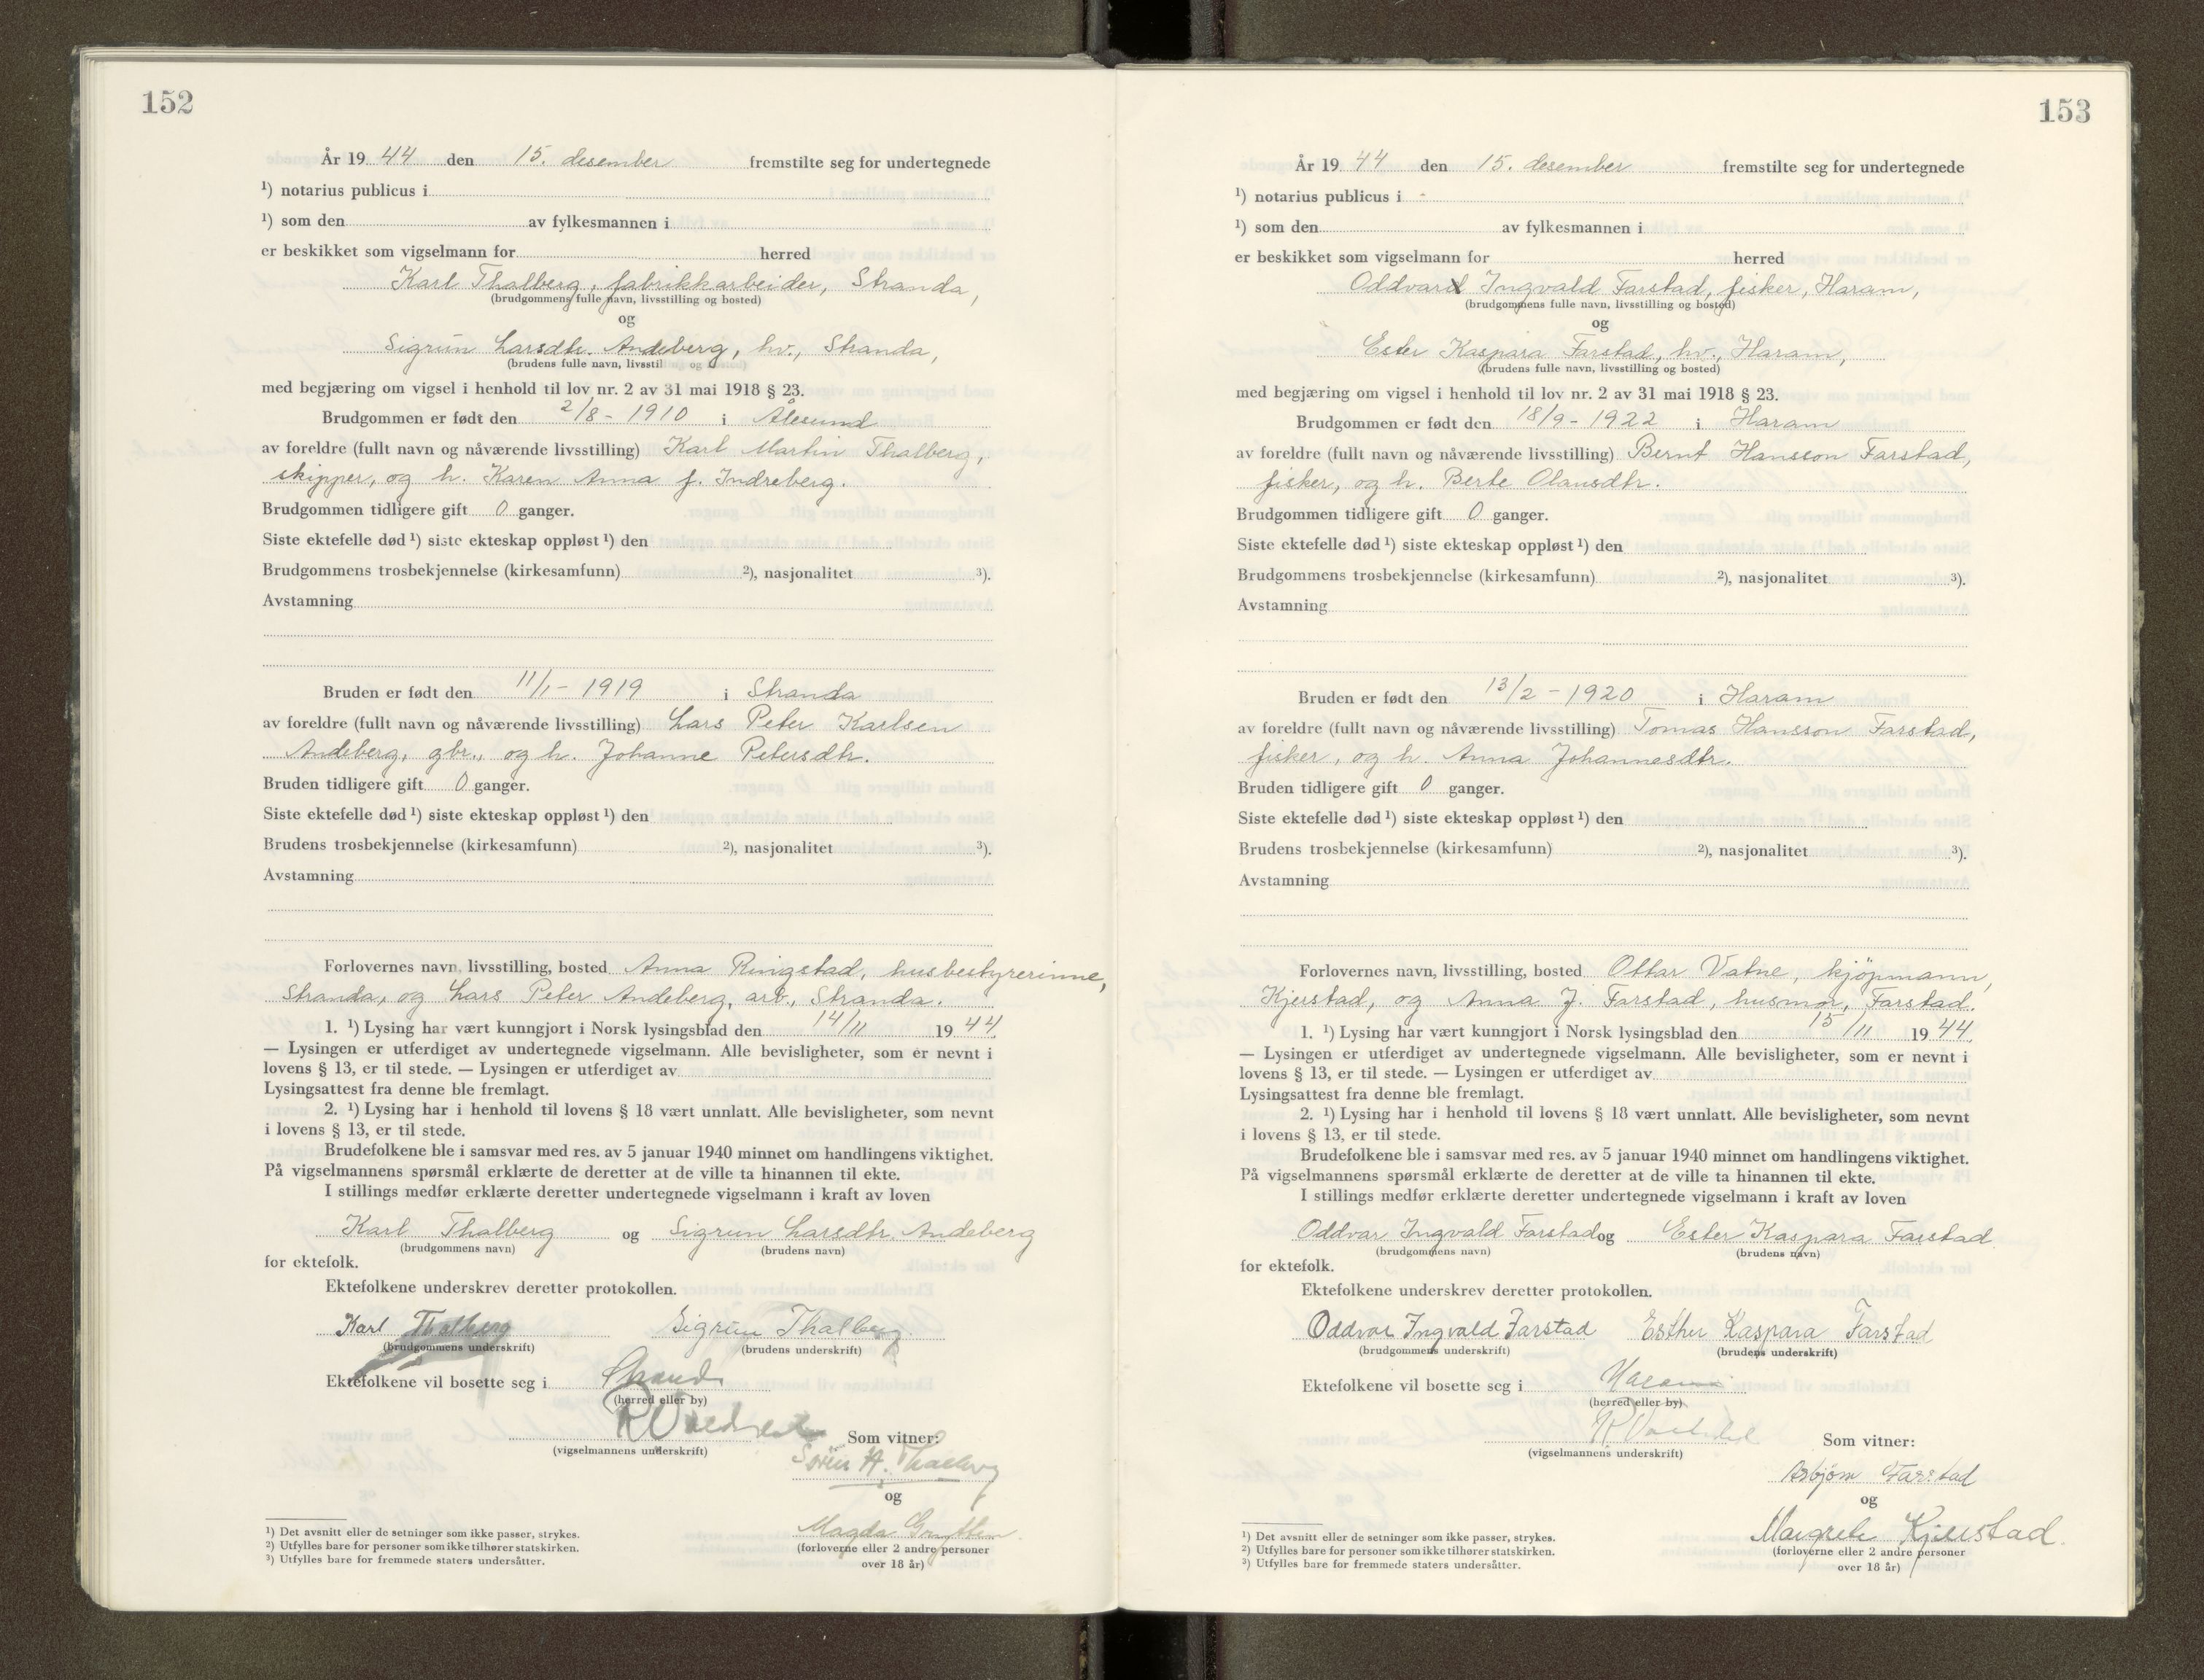 152
År 19 44 den 15. desember fremstilte seg for undertegnede
¹) notarius publicus i
¹) som den av fylkesmannen i
er beskikket som vigselmann for herred
Karl Thalberg, fabrikkarbeider, Stranda,
(brudgommens fulle navn, livsstilling og bosted)
og
Sigrun Larsdtr. Andeberg, hv., Stranda,
(brudens fulle navn, livsstil og og )
med begjæring om vigsel i henhold til lov nr. 2 av 31 mai 1918 § 23.
Brudgommen er født den 2/8 - 1910 i Ålesund
av foreldre (fullt navn og nåværende livsstilling) Karl Martin Thalberg,
skipper, og h. Karen Anna f. Indreberg.
Brudgommen tidligere gift 0 ganger.
Siste ektefelle død ¹) siste ekteskap oppløst ¹) den
Brudgommens trosbekjennelse (kirkesamfunn) ²), nasjonalitet ³).
Avstamning
Bruden er født den 11/1 - 1919 i Stranda
av foreldre (fullt navn og nåværende livsstilling) Lars Peter Karlsen
Andeberg, gbr., og h. Johanne Petersdtr.
Bruden tidligere gift 0 ganger.
Siste ektefelle død ¹) siste ekteskap oppløst ¹) den
Brudens trosbekjennelse (kirkesamfunn) ²), nasjonalitet ³).
Avstamning
Forlovernes navn, livsstilling, bosted Anna Ringstad, husbestyrerinne,
Stranda, og Lars Peter Andeberg, arb., Stranda.
1. ¹) Lysing har vært kunngjort i Norsk lysingsblad den 14/11 19 44.
— Lysingen er utferdiget av undertegnede vigselmann. Alle bevisligheter, som er nevnt i
lovens § 13, er til stede. — Lysingen er utferdiget av
Lysingsattest fra denne ble fremlagt.
2. ¹) Lysing har i henhold til lovens § 18 vært unnlatt. Alle bevisligheter, som nevnt
i lovens § 13, er til stede.
Brudefolkene ble i samsvar med res. av 5 januar 1940 minnet om handlingens viktighet.
På vigselmannens spørsmål erklærte de deretter at de ville ta hinannen til ekte.
I stillings medfør erklærte deretter undertegnede vigselmann i kraft av loven
Karl Thalberg og Sigrun Larsdtr. Andeberg
(brudgommens navn) (brudens navn)
for ektefolk.
Ektefolkene underskrev deretter protokollen.
Karl Thalberg Sigrun Thalberg
(brudgommens underskrift) (brudens underskrift)
Ektefolkene vil bosette seg i Strand
(herred eller by)
(vigselmannens underskrift) Som vitner:
A. Thalberg
og
Magda
(forloverne eller 2 andre personer
over 18 år)
¹) Det avsnitt eller de setninger som ikke passer, strykes.
²) Utfylles bare for personer som ikke tilhører statskirken.
³) Utfylles bare for fremmede staters undersåtter.
153
År 19 44 den 15. desember fremstilte seg for undertegnede
¹) notarius publicus i
¹) som den av fylkesmannen i
er beskikket som vigselmann for herred
Oddvar Ingvald Farstad, fisker, Haram,
(brudgommens fulle navn, livsstilling og bosted)
og
Ester Kaspara Farstad, hv., Haram,
(brudens fulle navn, livsstilling og bosted)
med begjæring om vigsel i henhold til lov nr. 2 av 31 mai 1918 § 23.
Brudgommen er født den 18/9 - 1922 i Haram
av foreldre (fullt navn og nåværende livsstilling) Bernt Hansson Farstad,
fisker, og h. Berte Olausdtr.
Brudgommen tidligere gift 0 ganger.
Siste ektefelle død ¹) siste ekteskap oppløst ¹) den
Brudgommens trosbekjennelse (kirkesamfunn) ²), nasjonalitet ³).
Avstamning
Bruden er født den 13/2 - 1920 i Haram
av foreldre (fullt navn og nåværende livsstilling) Tomas Hansson Farstad,
fisker, og h. Anna Johannesdtr.
Bruden tidligere gift 0 ganger.
Siste ektefelle død ¹) siste ekteskap oppløst ¹) den
Brudens trosbekjennelse (kirkesamfunn) ²), nasjonalitet ³).
Avstamning
Forlovernes navn, livsstilling, bosted Ottar Vatne, kjöpmann,
Kjerstad, og Anna J. Farstad, husmor, Farstad.
1. ¹) Lysing har vært kunngjort i Norsk lysingsblad den 15/11 19 44.
— Lysingen er utferdiget av undertegnede vigselmann. Alle bevisligheter, som er nevnt i
lovens § 13, er til stede. — Lysingen er utferdiget av
Lysingsattest fra denne ble fremlagt.
2. ¹) Lysing har i henhold til lovens § 18 vært unnlatt. Alle bevisligheter, som nevnt
i lovens § 13, er til stede.
Brudefolkene ble i samsvar med res. av 5 januar 1940 minnet om handlingens viktighet.
På vigselmannens spørsmål erklærte de deretter at de ville ta hinannen til ekte.
I stillings medfør erklærte deretter undertegnede vigselmann i kraft av loven
Oddvar Ingvald Farstad og Ester Kaspara Farstad
(brudgommens navn) (brudens navn)
for ektefolk.
Ektefolkene underskrev deretter protokollen.
Oddvar Ingvald Farstad Esther Kaspara Farstad
(brudgommens underskrift) (brudens underskrift)
Ektefolkene vil bosette seg i Haram
(herred eller by)
(vigselmannens underskrift) Som vitner:
Asbjørn Farstad
og
Margrete Kjerstad.
(forloverne eller 2 andre personer
over 18 år)
¹) Det avsnitt eller de setninger som ikke passer, strykes.
²) Utfylles bare for personer som ikke tilhører statskirken.
³) Utfylles bare for fremmede staters undersåtter.